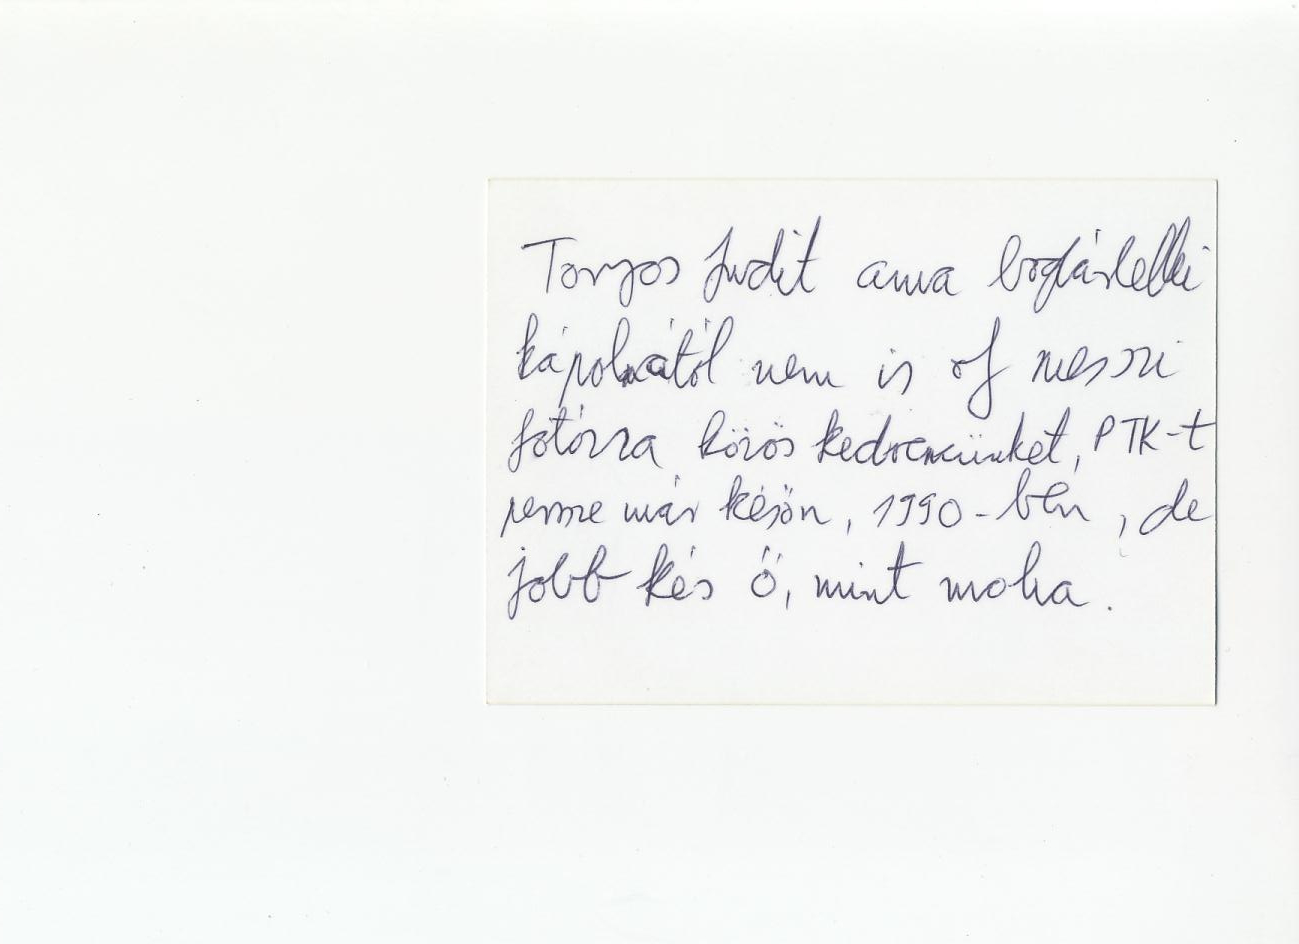 Tornyos Judit ama boglárlellei
kápolnától nem is oly messzi
fotózza közös kedvencünket, PTK-t
persze már késön, 1990-ben, de
jobb kés ő, mint moha.